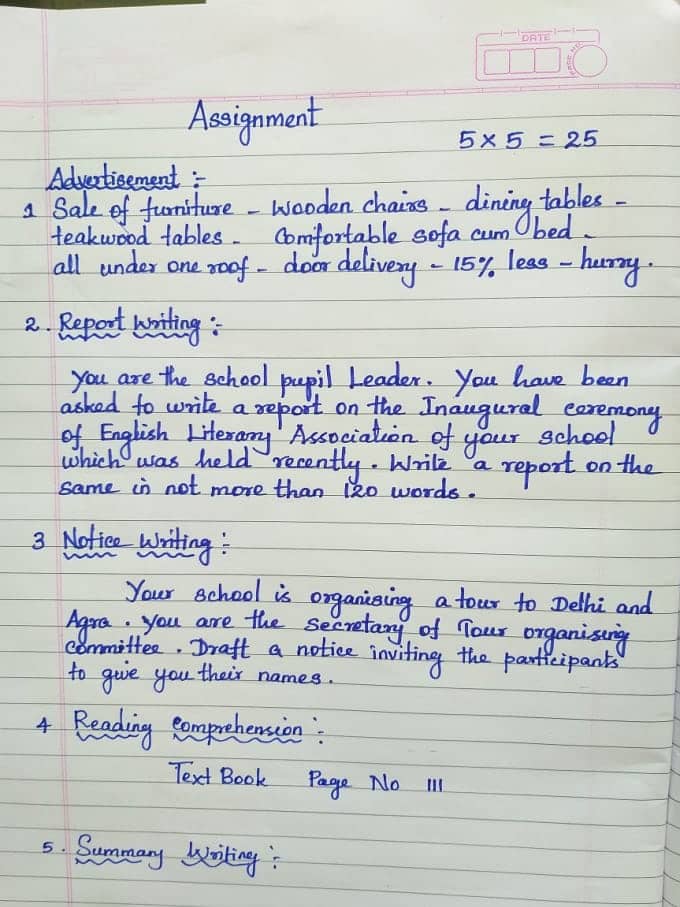 DATE
PAGE NO
Assignment
5 x 5 = 25
Advertisement :-
1 Sale of furniture - Wooden chairs - dining tables -
teakwood tables - Comfortable sofa cum bed -
all under one roof - door delivery - 15% less - hurry.
2. Report Writing :-
You are the school pupil Leader. You have been
asked to write a report on the Inaugural ceremony
of English Literary Association of your school
which was held recently. Write a report on the
same in not more than 120 words.
3 Notice Writing :-
Your school is organising a tour to Delhi and
Agra. You are the secretary of Tour organising
Committee. Draft a notice inviting the participants
to give you their names.
4 Reading Comprehension :-
Text Book Page No 111
5. Summary Writing :-